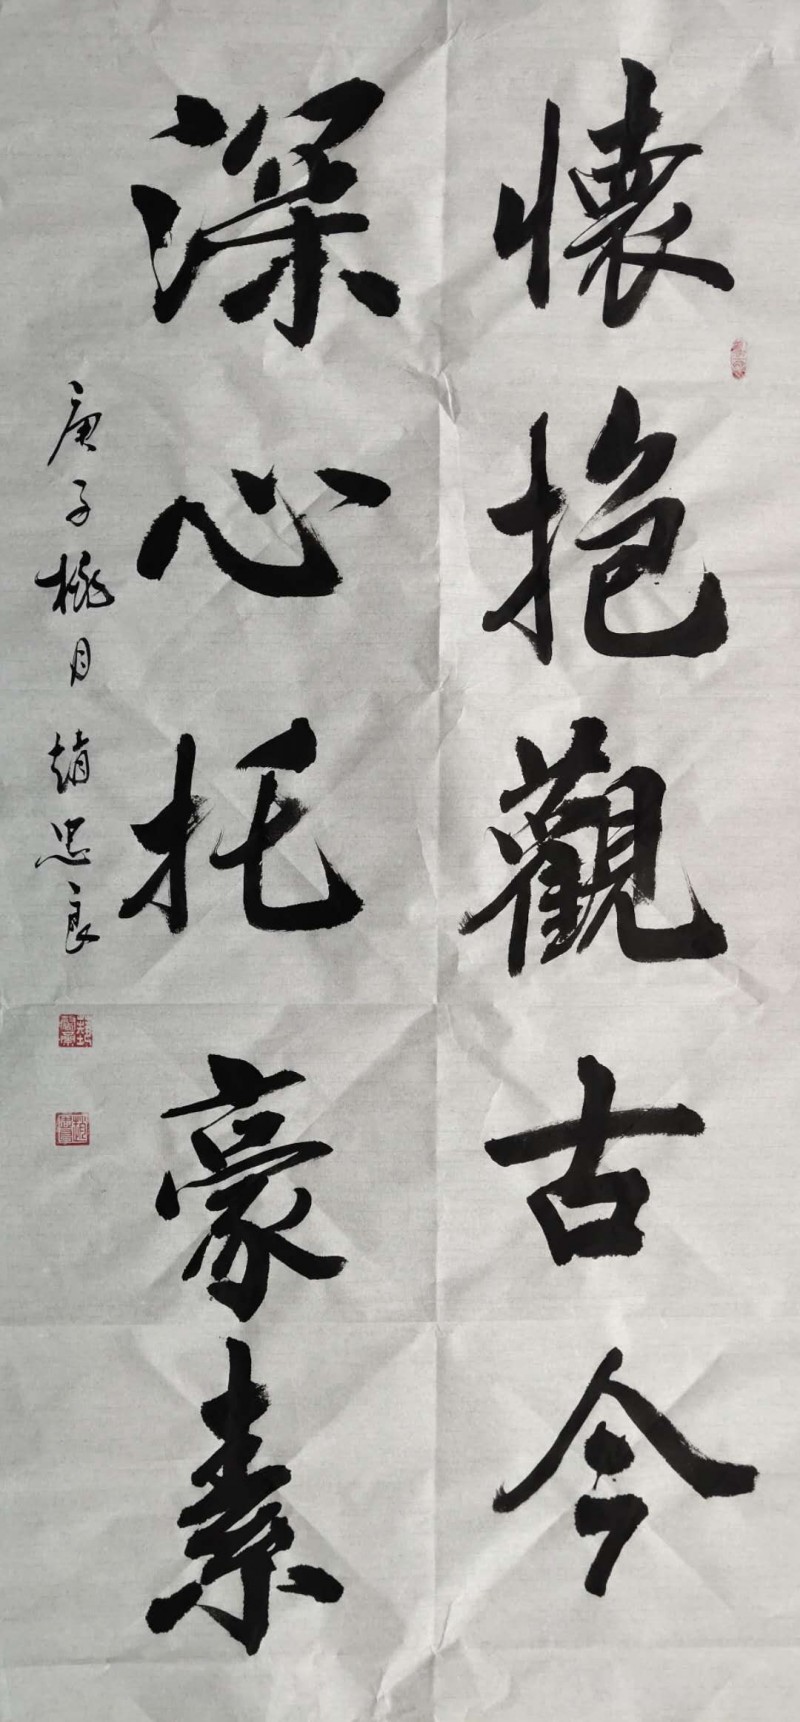 懷抱觀古今
深心托豪素
庚子桃月 趙忠良